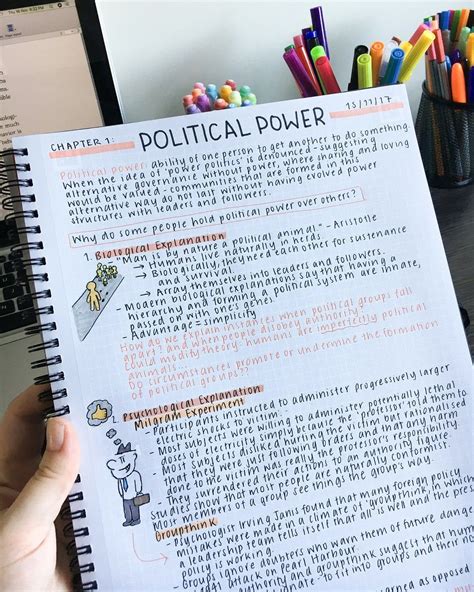 CHAPTER 1:
POLITICAL POWER
13/11/17
Political power: ability of one person to get another to do something.
When the idea of 'power politics' is denounced - suggesting
alternative governance without power, where sharing and loving
would be valued - communities that are formed in this
alternative way do not last without having evolved power
structures with leaders and followers.
Why do some people hold political power over others?
1. Biological Explanation
- "Man is by nature a political animal" - Aristotle
→ Humans live naturally in herds.
→ Biologically, they need each other for sustenance
and survival.
→ Array themselves into leaders and followers.
- Modern biological explanations say that having a
hierarchy and forming a political system are innate,
passed on with one's genes.
- Advantage = simplicity
How do we explain instances when political groups fall
apart? and when people disobey authority?
Could modify theory: humans are imperfectly political
animals...
Do circumstances promote or undermine the formation
of political groups??
Psychological Explanation
Milgram Experiment
- Participants instructed to administer progressively larger
electric shocks to victim.
- Most subjects were willing to administer potentially lethal
doses of electricity simply because the 'professor' told them to
- Most subjects disliked hurting the victim but rationalised
that they were just following orders and that any harm
done to the victim was really the professor's responsibility.
- They surrendered their actions to an authority figure.
Studies show that most people are naturally conformist.
Most members of a group see things the group's way.
Groupthink
- Psychologist Irving Janis found that many foreign policy
mistakes were made in a climate of 'groupthink', in which
a leadership team tells itself that all is well and the
policy is working.
- Groups ignore doubters who warn them of future
attack on Pearl Harbour.